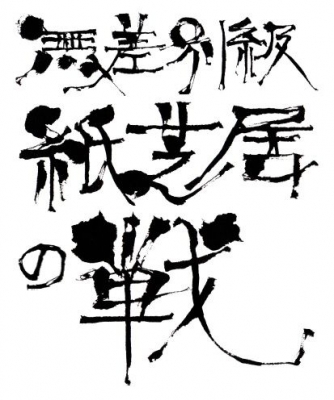 無差別級
紙芝居
の戦